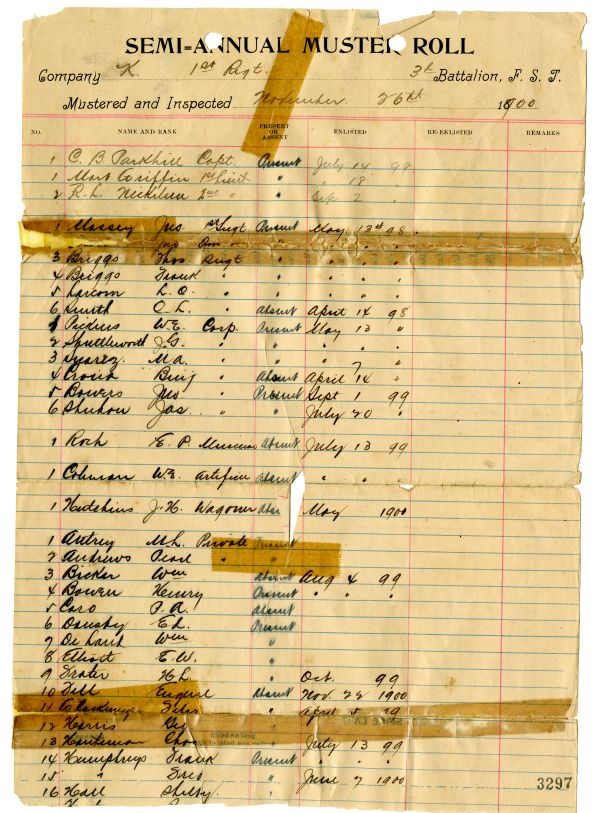 SEMI-ANNUAL MUSTER ROLL
Company K. 1st Regt. 3d Battalion, F. S. T.
Mustered and Inspected November 26th 1900
NO. NAME AND RANK PRESENT OR ABSENT ENLISTED RE-ENLISTED REMARKS
1 C. B. Parkhill Capt. Present July 14 99
1 Mort Griffin 1st Lieut " " 18
2 R. L. 2nd " " Sep. 2 "
1 Massey Jno 1st Sergt Present May 13th 98
3 Briggs Thos Sergt " " " "
4 Briggs Frank " " " " "
5 Larcom L. O. " " " " "
6 Smith O. L. " Absent April 14 98
1 Pickens W. E. Corp. Present May 13 "
2 Shuttleworth J. G. " " " " "
3 Suarez M. A. " " " 7 "
4 Benj " Absent April 14 "
5 Bowers Jno " Present Sept 1 99
6 Jas. " " July 20 "
1 Roch E. P. Musician Absent July 13 99
1 Cobman W. E. Artificer Absent " " "
1 Hutchins J. H. Wagoner Abs May 1900
1 Autrey M. L. Private Present
2 Andrews Pearl " "
3 Bicker Wm Absent Aug 4 99
4 Bowen Henry Present " " "
5 Caro P. A. Absent
6 Dansby Ed. Present
7 Wm "
8 Elliott E. W. "
9 Frater H. L. " Oct. 99
10 Eugene Absent Nov. 22 1900
11 " April 5 29
12 Harris Geo "
13 Chas " July 13 99
14 Humphreys Frank Present " " "
15 " Fred " June 7 1900
16 Hall Shelby "
3297